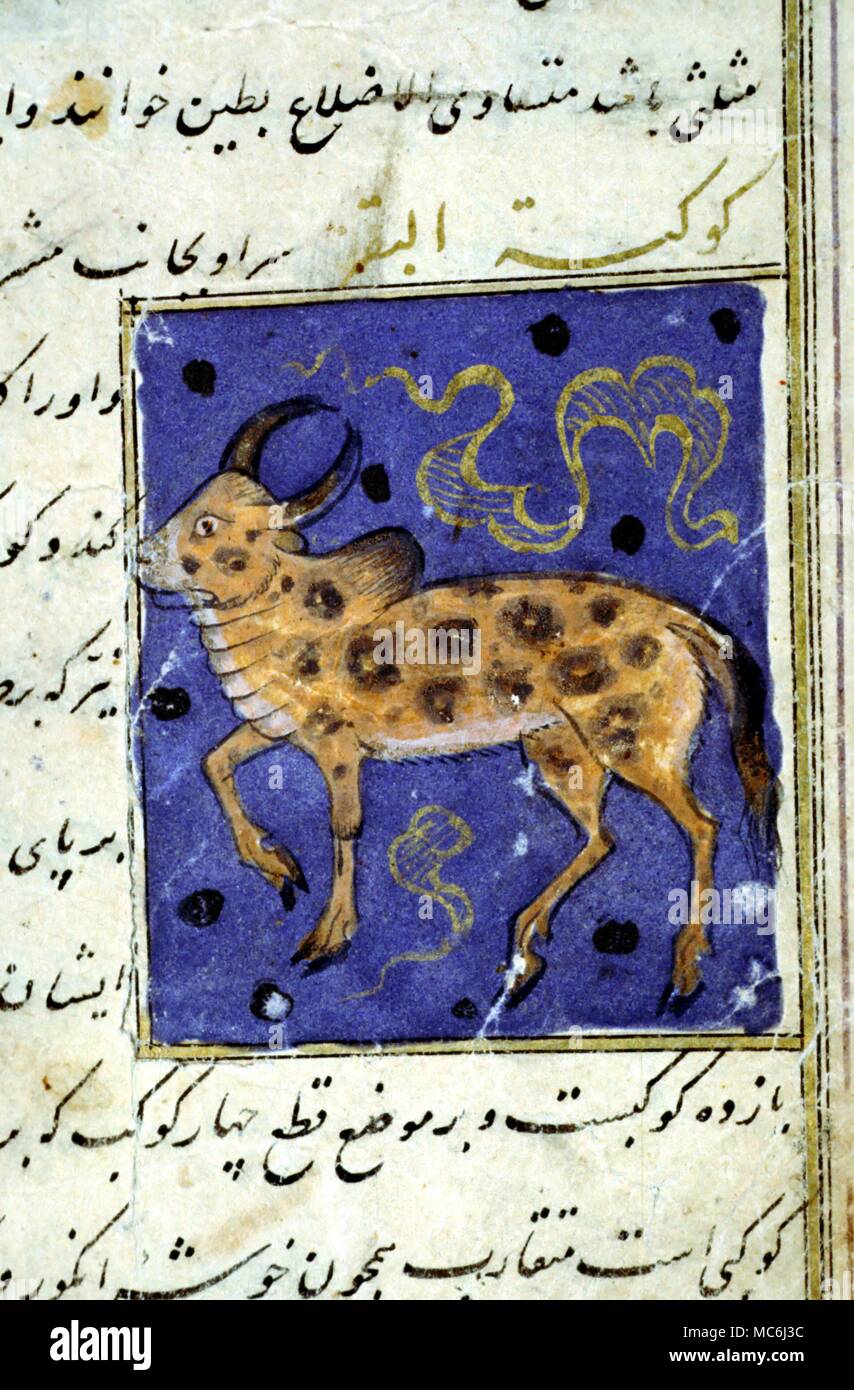 مثلثی باشد متساوی الاضلاع بطین خوانند وا
کوکبة البقر سر او بجانب مشر
واورا
کند و کو
برپای
ایشان
یازده کوکبست و بر موضع قطع چهار کوکب که بر
کوکبی است متقارب همچون خوشه انگور و
alamy
Image ID: MC6J3C
www.alamy.com